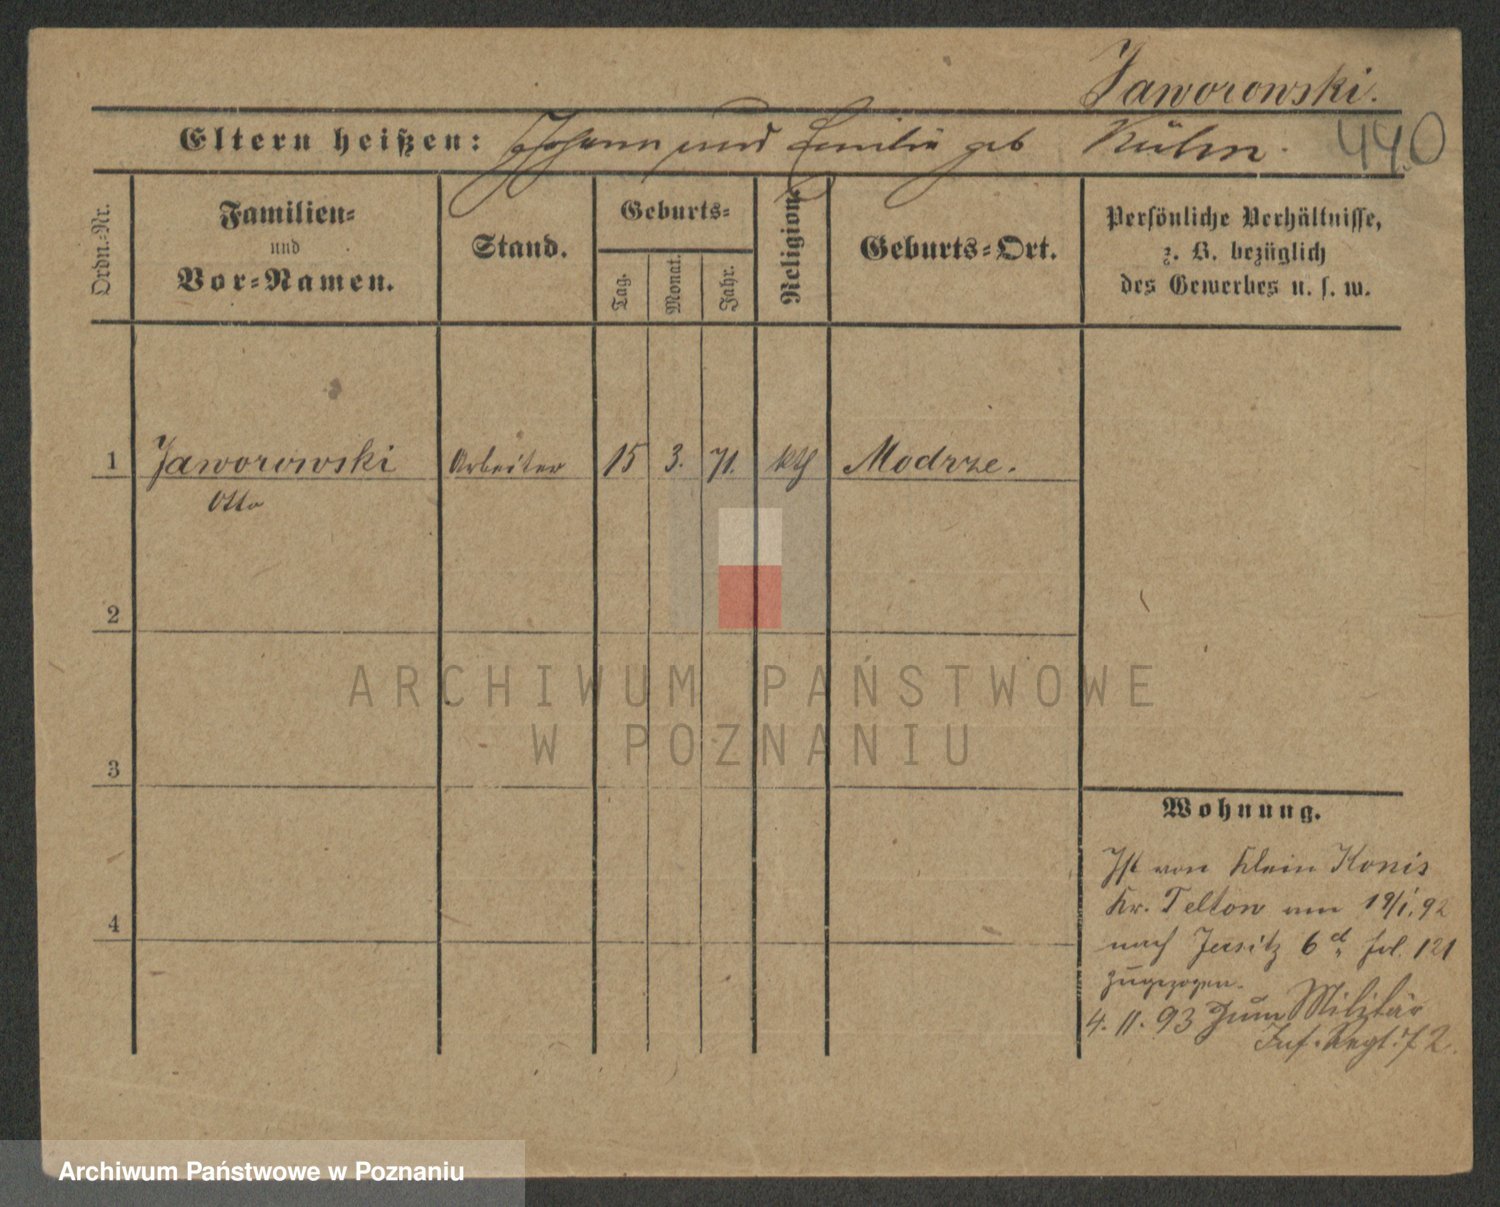 Jaworowski.
440
Eltern heißen: Johann und Emilie geb Kühn.
Ordn.-Nr.
Familien-
und
Vor-Namen.
Stand.
Geburts-
Tag.
Monat.
Jahr.
Religion.
Geburts-Ort.
Persönliche Verhältnisse,
z. B. bezüglich
des Gewerbes u. s. w.
1 Jaworowski Arbeiter 15 3. 71. kth Modrze.
Otto
2
ARCHIWUM PAŃSTWOWE
W POZNANIU
3
Wohnung.
Ist von Klein Konis
Kr. Telton am 19/1. 92
4
nach Jersitz 6 fol. 121
zugezogen.
4. 11. 93 Zum Militär
Inf. Regt. 72.
Archiwum Państwowe w Poznaniu